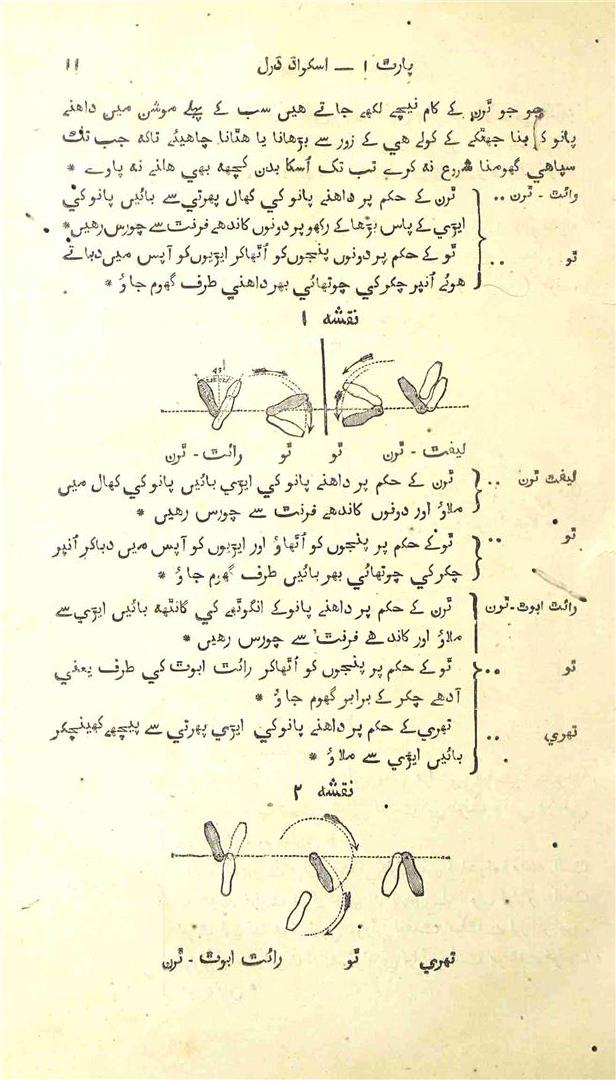 پارٹ ۱ — اسکواڈ ڈرل ۱۱
جو جو ٹرن کے کام نیچے لکھے جاتے هیں سب کے پہلے موشن میں داهنے
پانو کو بنا جھٹکے کے کولے هي کے زور سے بڑهانا یا هٹانا چاهیئے تاکہ جب تک
سپاهي گھومنا شروع نہ کرے تب تک اُسکا بدن کچھہ بھي هلنے نہ پاوے *
رائٹ - ٹرن .. ٹرن کے حکم پر داهنے پانو کي کھال پھرتي سے بائیں پانو کي
ایڑي کے پاس بڑها کے رکھو پر دونوں کاندهے فرنٹ سے چورس رهیں *
ٹو .. ٹو کے حکم پر دونوں پنجوں کو اُٹھا کر ایڑیوں کو آپس میں دباتے
هوئے اُنپر چکر کي چوتھائي بھر داهني طرف گھوم جاؤ *
نقشہ ۱
۴۵
لیفٹ - ٹرن ٹو ٹو رائٹ - ٹرن
لیفٹ ٹرن .. ٹرن کے حکم پر داهنے پانو کي ایڑي بائیں پانو کي کھال میں
ملاؤ اور دونوں کاندهے فرنٹ سے چورس رهیں *
ٹو .. ٹو کے حکم پر پنجوں کو اُٹھاؤ اور ایڑیوں کو آپس میں دباکر اُنپر
چکر کي چوتھائي بھر بائیں طرف گھوم جاؤ *
رائٹ ابوٹ - ٹرن ٹرن کے حکم پر داهنے پانو کے انگوٹھے کي گانٹھہ بائیں ایڑي سے
ملاؤ اور کاندهے فرنٹ سے چورس رهیں *
ٹو .. ٹو کے حکم پر پنجوں کو اُٹھاکر رائٹ ابوٹ کي طرف یعني
آدهے چکر کے برابر گھوم جاؤ *
تھري .. تھري کے حکم پر داهنے پانو کي ایڑي پھرتي سے پیچھے کھینچکر
بائیں ایڑي سے ملاؤ *
نقشہ ۲
تھري ٹو رائٹ ابوٹ - ٹرن